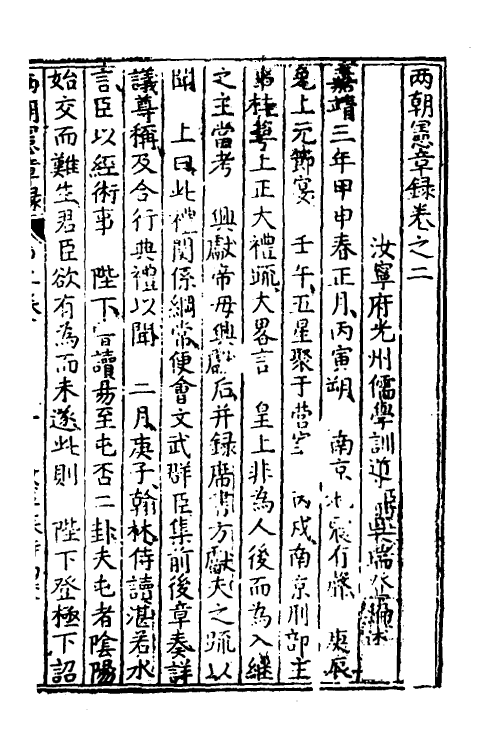 两朝憲章録卷之二
汝寧府光州儒學訓導臣吳瑞登編述
嘉靖三年甲申春正月丙寅朔　南京地震有聲　庚辰
上元節宴　壬午五星聚于營室　丙戌南京刑部主
事桂萼上正大禮疏大畧言　皇上非為人後而為入継
之主當考　興獻帝母興獻后并録席書方獻夫之疏以
聞　上曰此禮関係綱常便會文武群臣集前後章奏詳
議尊稱及合行典禮以聞　二月庚子翰林侍讀湛若水
言臣以經術事　陛下嘗讀昜至屯否二卦夫屯者陰陽
始交而難生君臣欲有為而未遂此則　陛下登極下詔
两朝憲章録